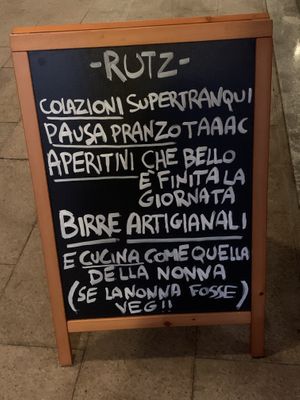 -RUTZ-
COLAZIONI SUPERTRANQUI
PAUSA PRANZO TAAAC
APERITIVI CHE BELLO
E' FINITA LA
GIORNATA
BIRRE ARTIGIANALI
E CUCINA COME QUELLA
DELLA NONNA
(SE LA NONNA FOSSE
VEG!!)